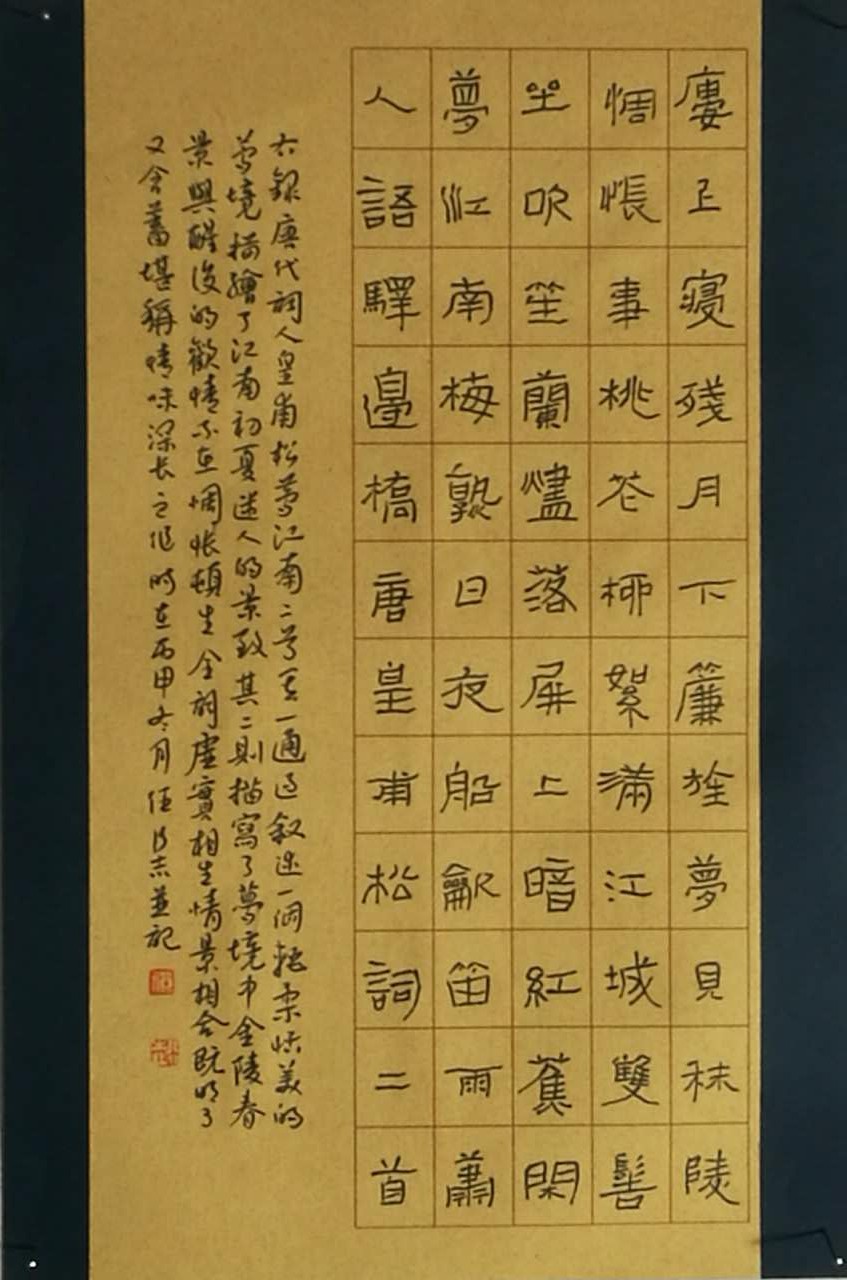 廔上寑殘月下簾旌夢見秣陵
惆悵事桃花柳絮滿江城雙髻
坐吹笙蘭燼落屏上暗紅蕉閑
夢江南梅熟日夜船龡笛雨蕭
人語驛邊橋唐皇甫松詞二首
右錄唐代詞人皇甫松夢江南二首其一通过叙述一個輕柔恬美的
夢境描繪了江南初夏迷人的景致其二則描寫了夢境中金陵春
景與醒後的歡情不在惆悵頓生全詞虛實相生情景相合既明了
又含蓄堪稱情味深长之作時在丙申冬月志並記